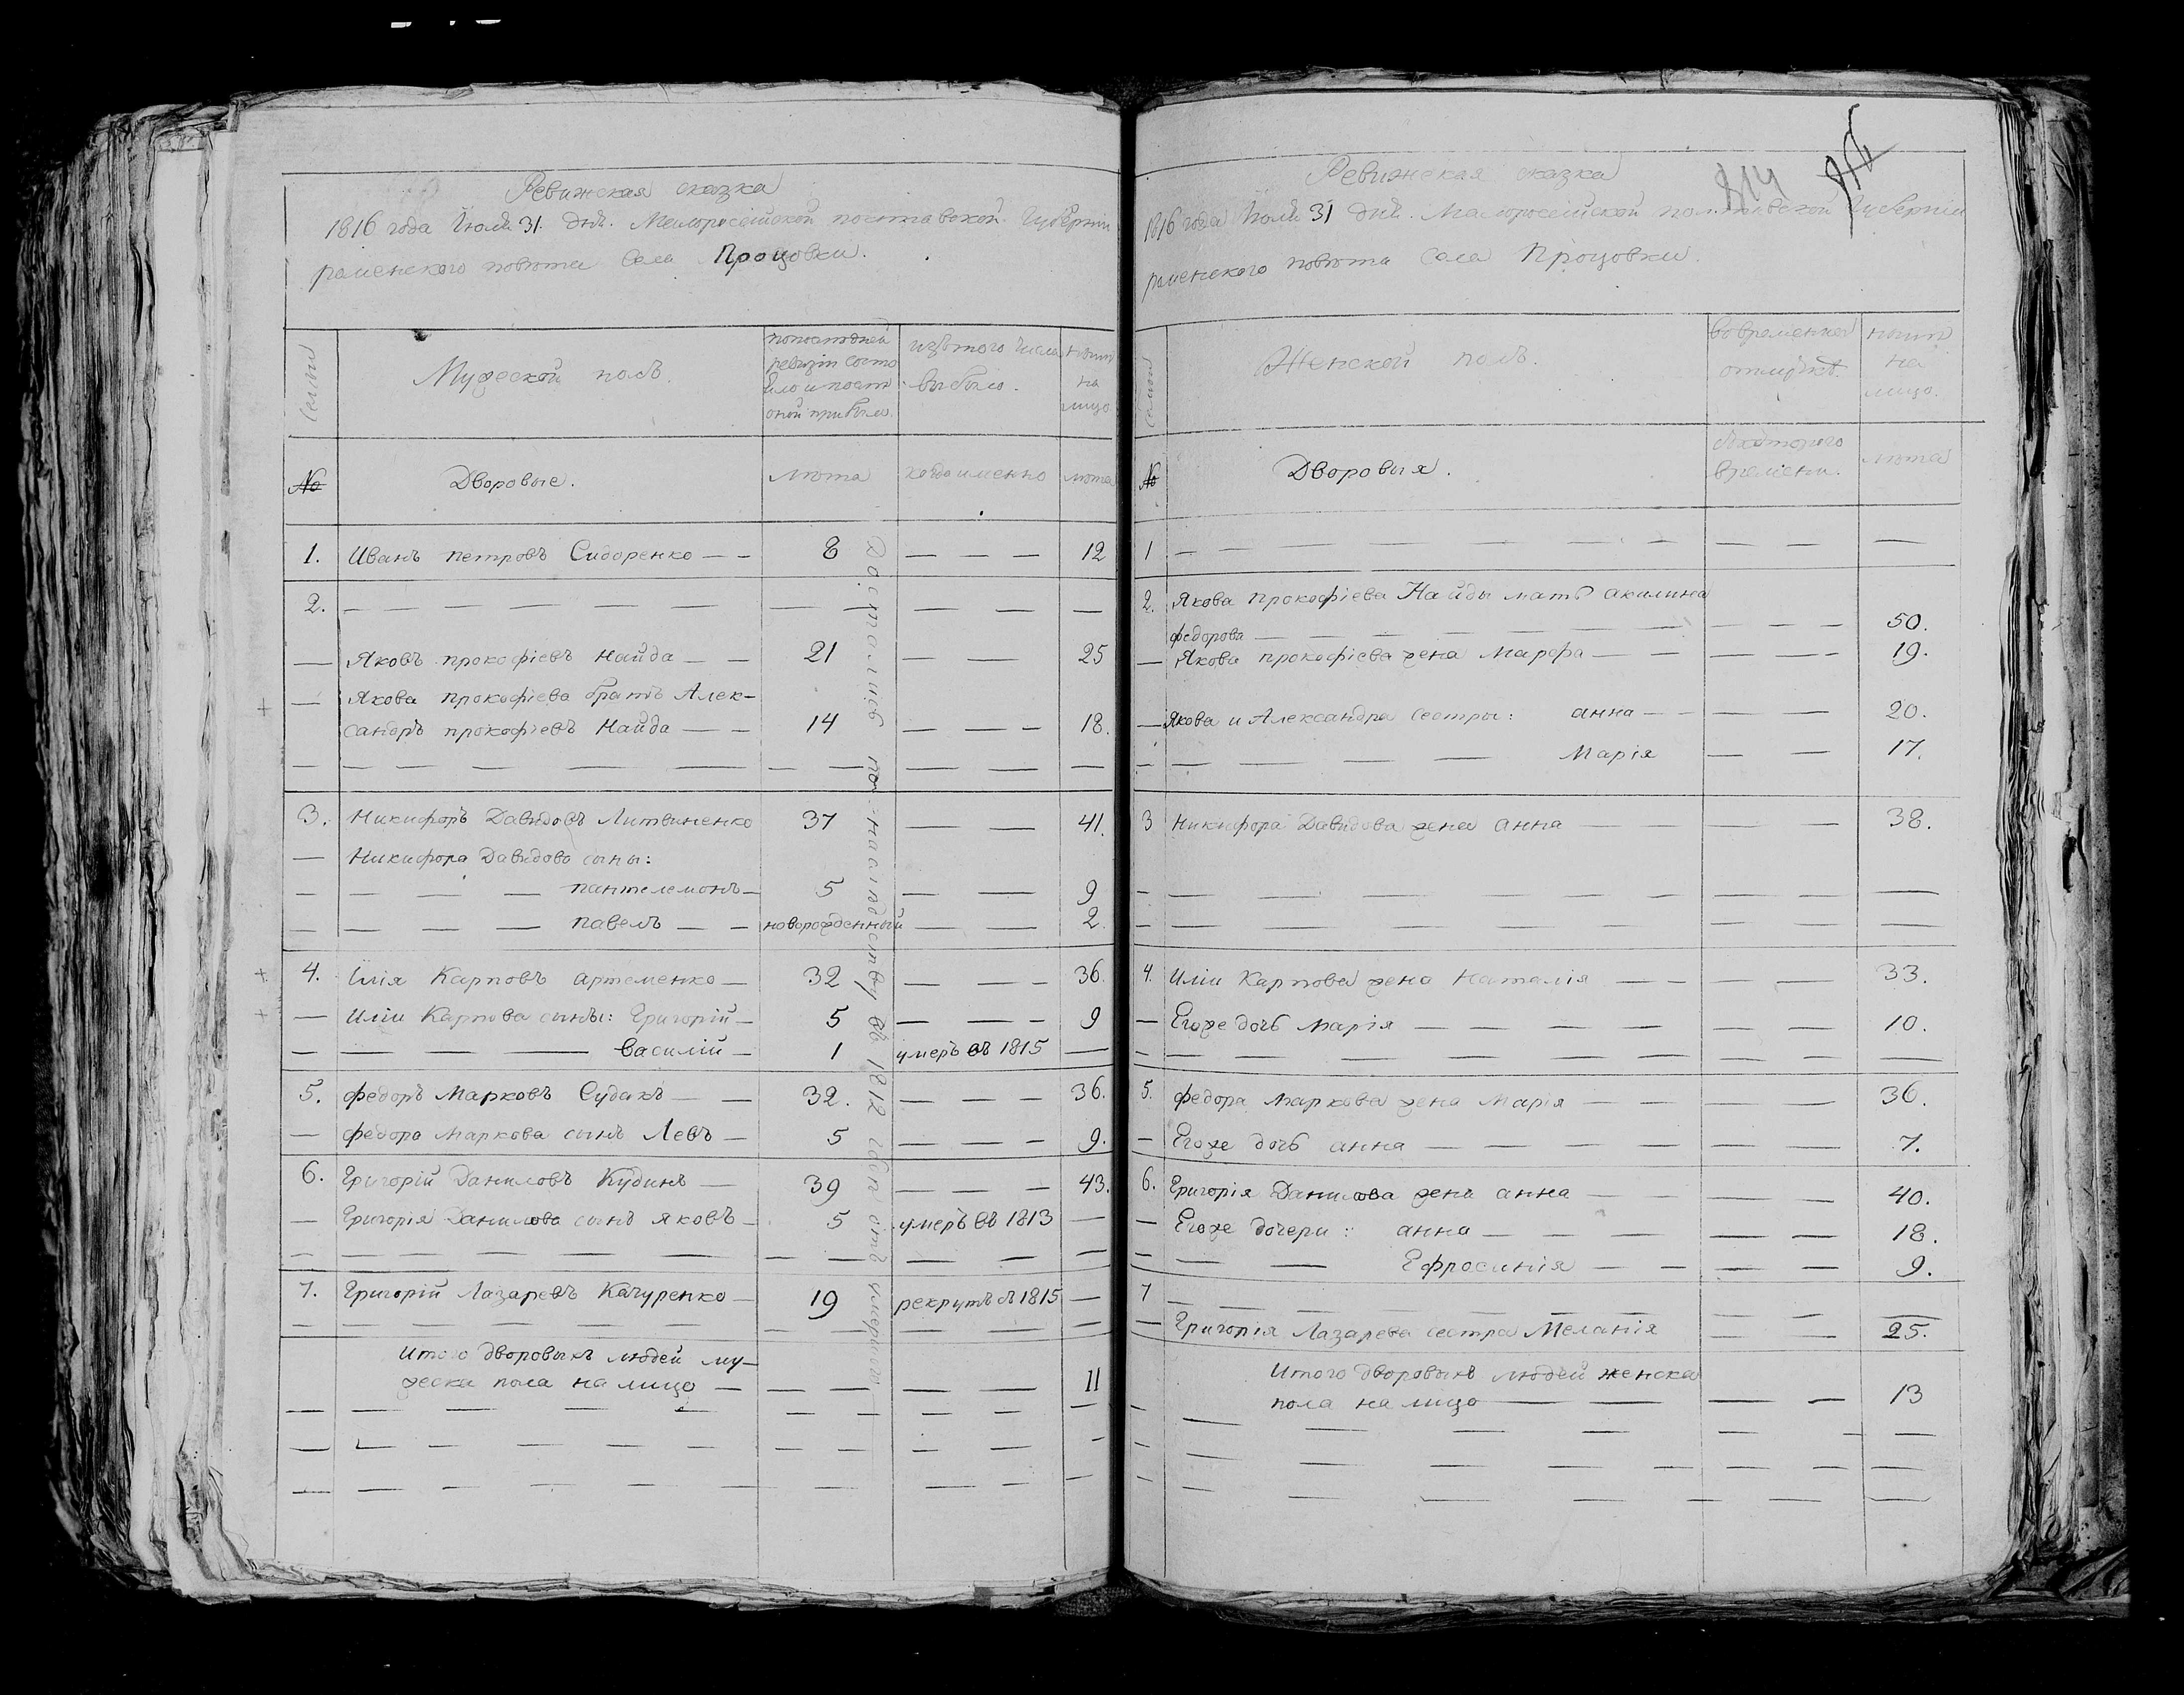 Ревижская сказка
1816 года Июля 31. дня. Малоросійской полтавской Губерніи
роменского повѣта Села Процовки.
Семьи
Мужеской полъ.
попоследней
ревизіи состо
яло и посли
оной прибыло.
изъ того числа
выбыло.
ныне
на
лицо
№
Дворовые.
лѣта
когда именно
лѣта
1. Иванъ петровъ Сидоренко — — 8 — — — 12
2. — — — — — —
— Яковъ прокофіевъ Найда — — 21 — — 25
— Якова прокофіева братъ Алек-
сандръ прокофіевъ Найда — — 14 — — — 18.
3. Никифоръ Давидовъ Литвиненко 37 — — 41.
— Никифора Давидова сыны:
— — — — пантелемонъ — 5 — — 9
— — — — павелъ — — новорожденный — — 2.
4. Илія Карповъ артеменко — 32 — — — 36.
— Иліи Карпова сыны: Григорій — 5 — — — 9
— — — — василій — 1 умеръ въ 1815 —
5. федоръ Марковъ Судакъ — — 32. — — — 36.
— федора маркова сынъ Левъ — 5 — — — 9.
6. Григорій Даниловъ Кудинъ — 39 — — — 43.
— Григорія Данилова сынъ яковъ — 5 умеръ въ 1813 —
7. Григорій Лазаревъ Качуренко — 19 рекрутъ в 1815 —
Итого дворовыхъ людей му-
жеска пола на лицо — — — — — 11
Достались по наследству въ 1812 года отъ
814
Ревижская сказка
1816 года Июля 31 дня. Малороссійской полтавской Губерніи
роменского повѣта Села Процовки.
Семьи
Женской полъ.
вовременной
отлучкѣ.
ныне
на
лицо.
№
Дворовыя.
Скоторого
времени.
лѣта
1 — — — — — —
2. Якова прокофіева Найды мать акилина
федорова — — — — — 50.
— Якова прокофіева жена Марфа — — — — — 19.
— Якова и Александра сестры: анна — — — — 20.
— — — — Марія — — 17.
3 Никифора Давидова жена анна — — — 38.
4. Иліи Карпова жена Наталія — — — — 33.
— Егоже дочь марія — — — — — 10.
5. федора маркова жена марія — — — — 36.
— Егоже дочь анна — — — — — 7.
6. Григорія Данилова жена анна — — — 40.
— Егоже дочери: анна — — — — — 18.
— — — Ефросинія — — — — 9.
7 — — — — — —
— Григорія Лазарева сестра Меланія — — 25.
Итого дворовыхъ людей женска
пола на лицо — — — — 13